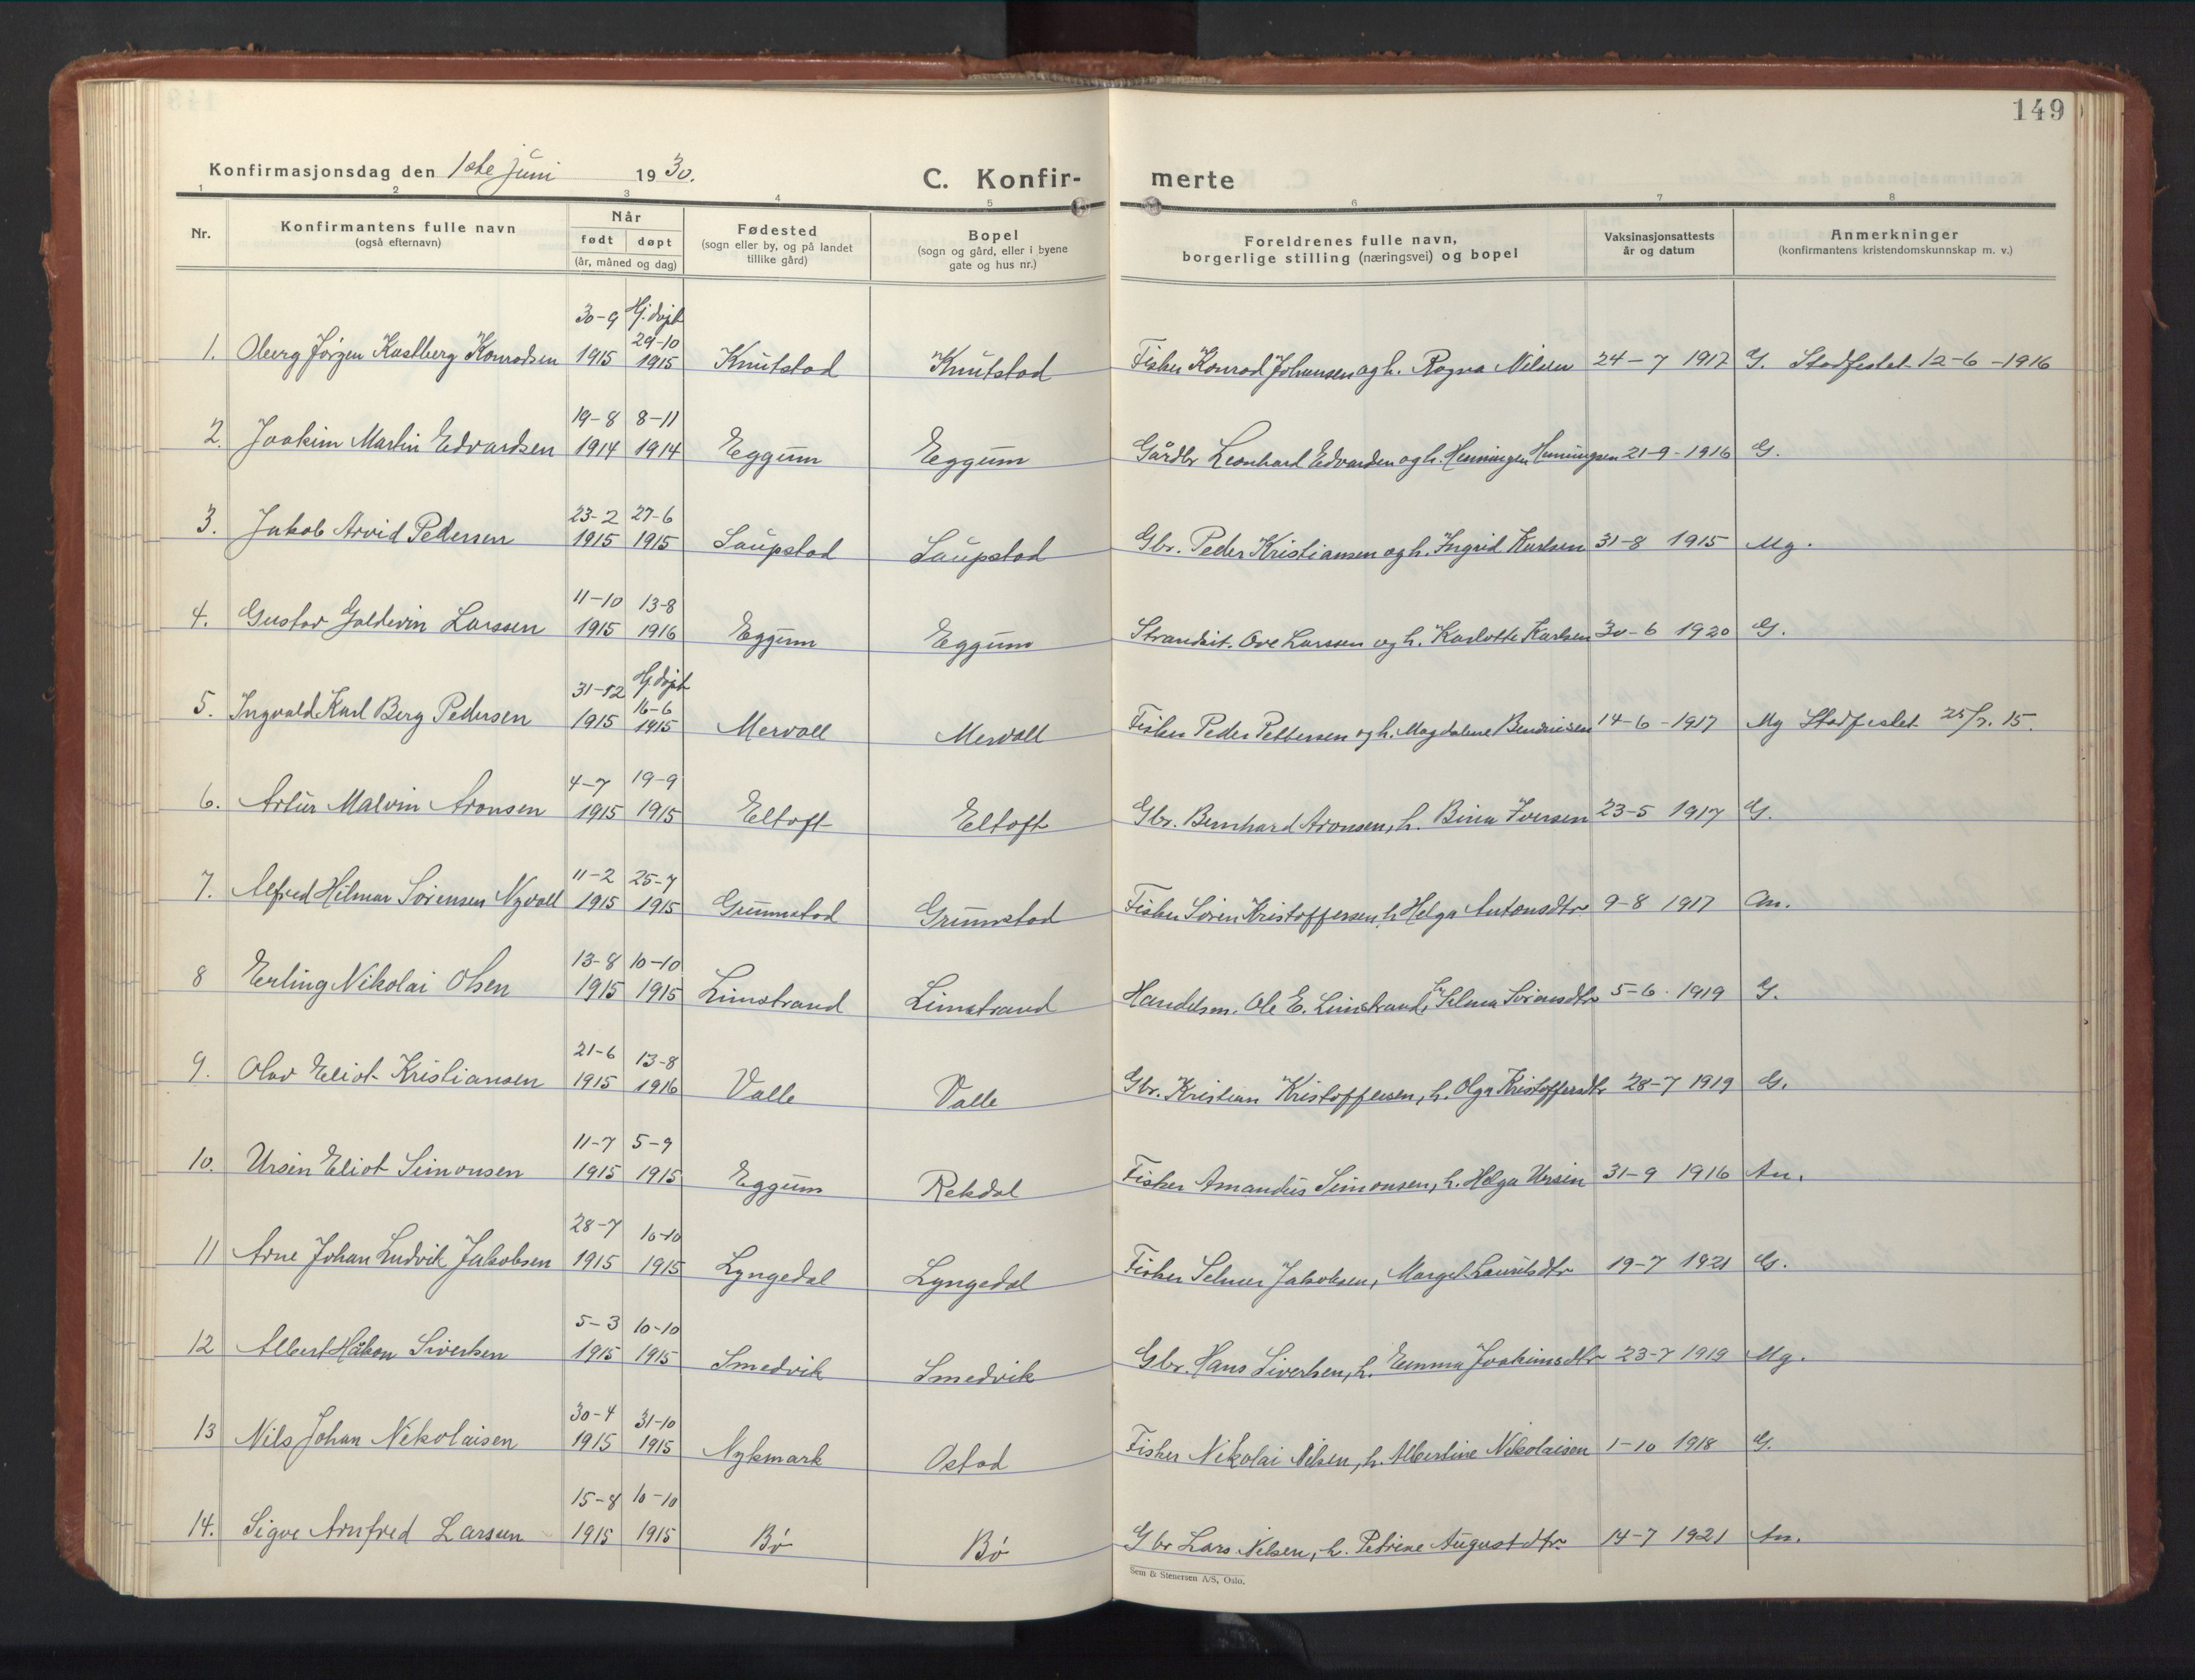 149
Konfirmasjonsdag den 1ste juni 1930.
C. Konfir-
merte
1 2 3 4 5 6 7 8
Nr. Konfirmantens fulle navn (også efternavn) Når født døpt (år, måned og dag) Fødested (sogn eller by, og på landet tillike gård) Bopel (sogn og gård, eller i byene gate og hus nr.) Foreldrenes fulle navn, borgerlige stilling (næringsvei) og bopel Vaksinasjonsattests år og datum Anmerkninger (konfirmantens kristendomskunnskap m. v.)
1. Oberg Jørgen Kastberg Konradsen 30-9 1915 Hj. døpt 29-10 1915 Knutstad Knutstad Fisker Konrad Johansen og h. Ragna Nilsen 24-7 1917 G. Stadfestet 12-6-1916
2. Joakim Martin Edvardsen 19-8 1914 8-11 1914 Eggum Eggum Gårdbr Leonhard Edvardsen og h. Henningsen 21-9-1916 G.
3. Jakob Arvid Pedersen 23-2 1915 27-6 1915 Saupstad Saupstad Gbr. Peder Kristiansen og h. Ingrid Karlsen 31-8 1915 Mg.
4. Gustav Goldevin Larssen 11-10 1915 13-8 1916 Eggum Eggum Strandsit. Ove Larssen og h. Karlotte Karlsen 30-6 1920 G.
5. Ingvald Karl Berg Pedersen 31-12 1915 Hj. døpt 16-6 1915 Mervoll Mervoll Fisker Peder Pettersen og h. Magdalene Bendiksen 14-6-1917 Mg Stadfestet 25/7. 15.
6. Artur Malvin Aronsen 4-7 1915 19-9 1915 Eltoft Eltoft Gbr. Bernhard Aronsen, h. Bina Iversen 23-5 1917 G.
7. Alfred Hilmar Sørensen Nyvoll 11-2 1915 25-7 1915 Grunnstad Grunnstad Fisker Søren Kristoffersen, h Helga Antonsdtr 9-8 1917 An.
8 Erling Nikolai Olsen 13-8 1915 10-10 1915 Limstrand Limstrand Handelsm. Ole E. Limstrand, h. Selma Sørensdtr 5-6. 1919 G.
9. Olav Eliot Kristiansen 21-6 1915 13-8 1916 Valle Valle Gbr. Kristian Kristoffersen, h. Olga Kristoffersdtr 28-7 1919 G.
10. Ursin Eliot Simonsen 11-7 1915 5-9 1915 Eggum Rekdal Fisker Amandus Simonsen, h. Helga Ursin 31-9 1916 An.
11 Arne Johan Ludvik Jakobsen 28-7 1915 10-10 1915 Lyngedal Lyngedal Fisker Selmer Jakobsen, Marget Lauritsdtr 19-7 1921 G.
12 Albert Håkon Sivertsen 5-3 1915 10-10 1915 Smedvik Smedvik Gbr. Hans Sivertsen, h. Emma Joakimsdtr 23-7 1919 Mg.
13 Nils Johan Nikolaisen 30-4 1915 31-10 1915 Nykmark Ostad Fisker Nikolai Nilsen, h. Albertine Nikolaisen 1-10 1918 G.
14. Sigve Arnfred Larssen 15-8 1915 10-10 1915 Bø Bø Gbr Lars Nilsen, h. Petrine Augustdtr. 14-7 1921 An.
Sem & Stenersen A/S, Oslo.